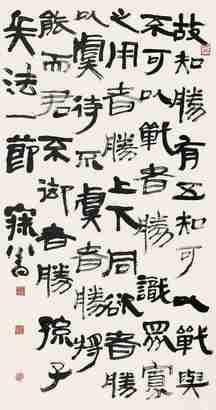 故知勝有五知可以戰與
不可以戰者勝識眾寡
之用者勝上下同欲者勝
以虞待不虞者勝將
能而君不御者勝孫子
兵法一節